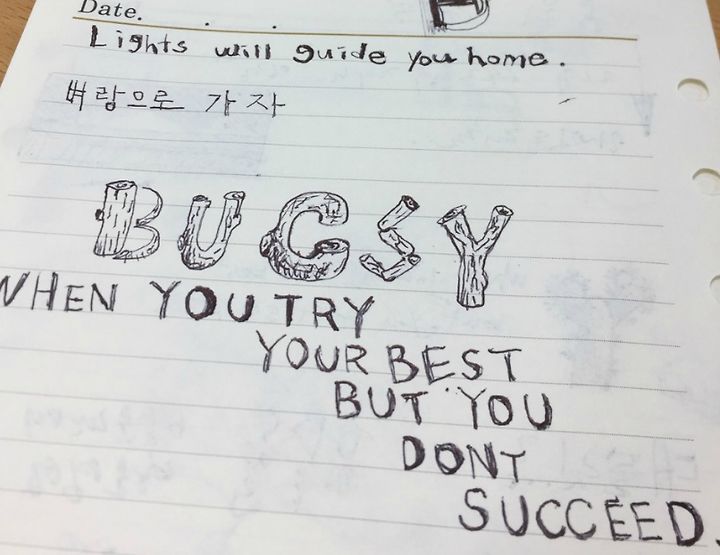 Date.
Lights will guide you home.
벼랑으로 가자
BUGSY
WHEN YOU TRY
YOUR BEST
BUT YOU
DONT
SUCCEED.